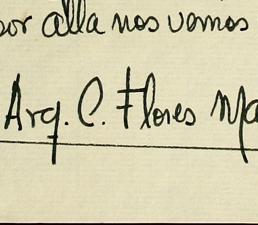 por alla nos vemos
Arq. C. Flores Ma